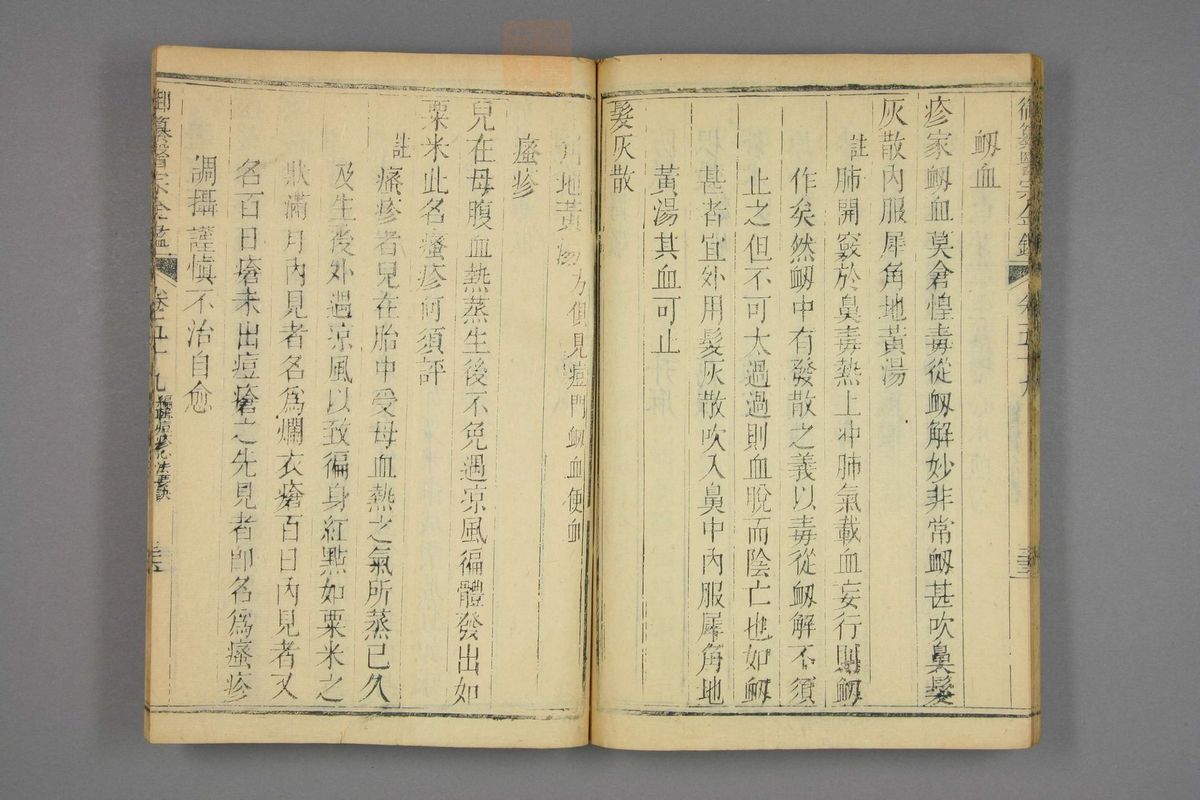 衂血
疹家衂血莫倉惶毒從衂解妙非常衂甚吹鼻髮
灰散內服犀角地黃湯
註肺開竅於鼻毒熱上冲肺氣載血妄行則衂
作矣然衂中有發散之義以毒從衂解不須
止之但不可太過過則血脫而陰亡也如衂
甚者宜外用髮灰散吹入鼻中內服犀角地
黃湯其血可止
髮灰散
地黃湯方俱見痘門衂血便血
瘙疹
兒在母腹血熱蒸生後不免遇凉風徧體發出如
粟米此名瘙疹何須評
註
瘙疹者兒在胎中受母血熱之氣所蒸已久
及生後外遇凉風以致徧身紅點如粟米之
狀滿月內見者名爲爛衣瘡百日內見者又
名百日瘡未出痘瘡之先見者卽名爲瘙疹
調攝謹慎不治自愈
御纂醫宗金鑑
卷五十九
編輯痘疹心法要訣